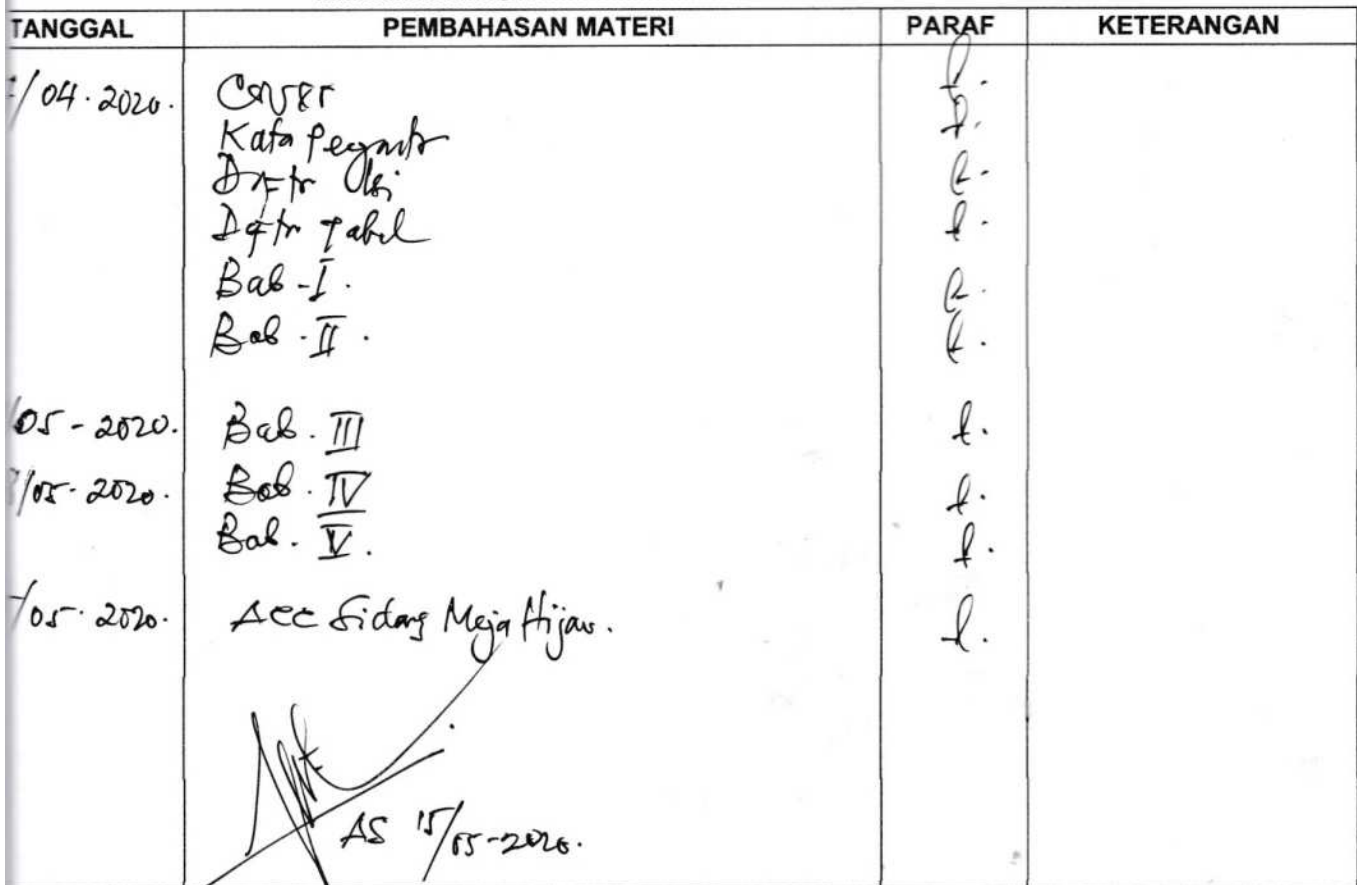 TANGGAL PEMBAHASAN MATERI PARAF KETERANGAN
/04.2020. Cover
Kata Pengantr
Daftr Isi
Daftr Tabel
Bab - I.
Bab. II.
/05-2020. Bab. III
/05-2020. Bab. IV
Bab. V.
/05.2020. Acc Sidang Meja Hijau.
AS 15/05-2020.